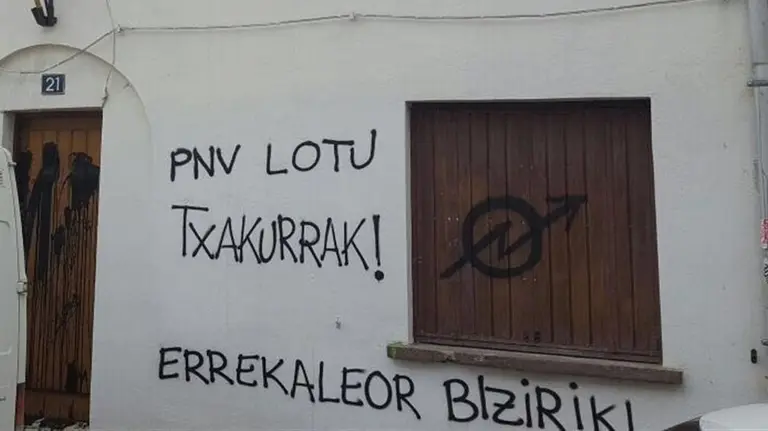 21
PNV LOTU
TXAKURRAK!
ERREKALEOR BIZIRIK!